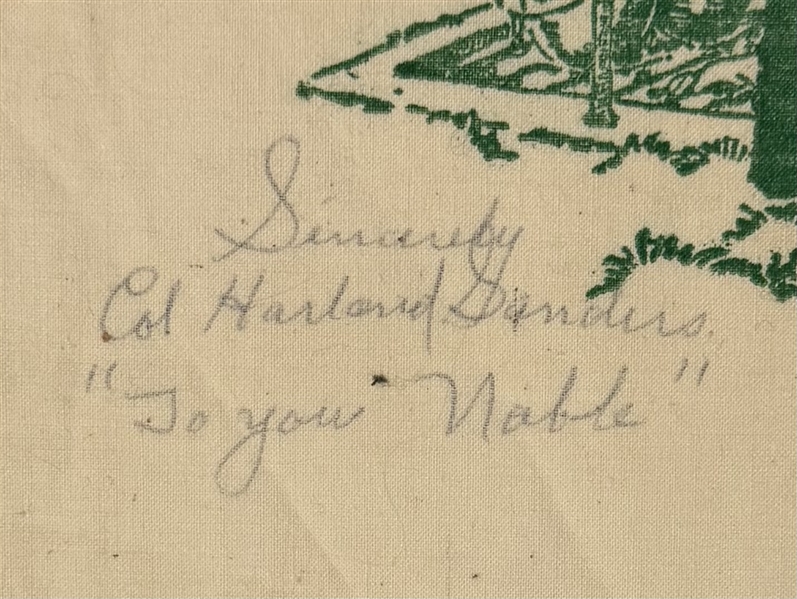 Sincerely
Col Harland Sanders.
"To you Noble"